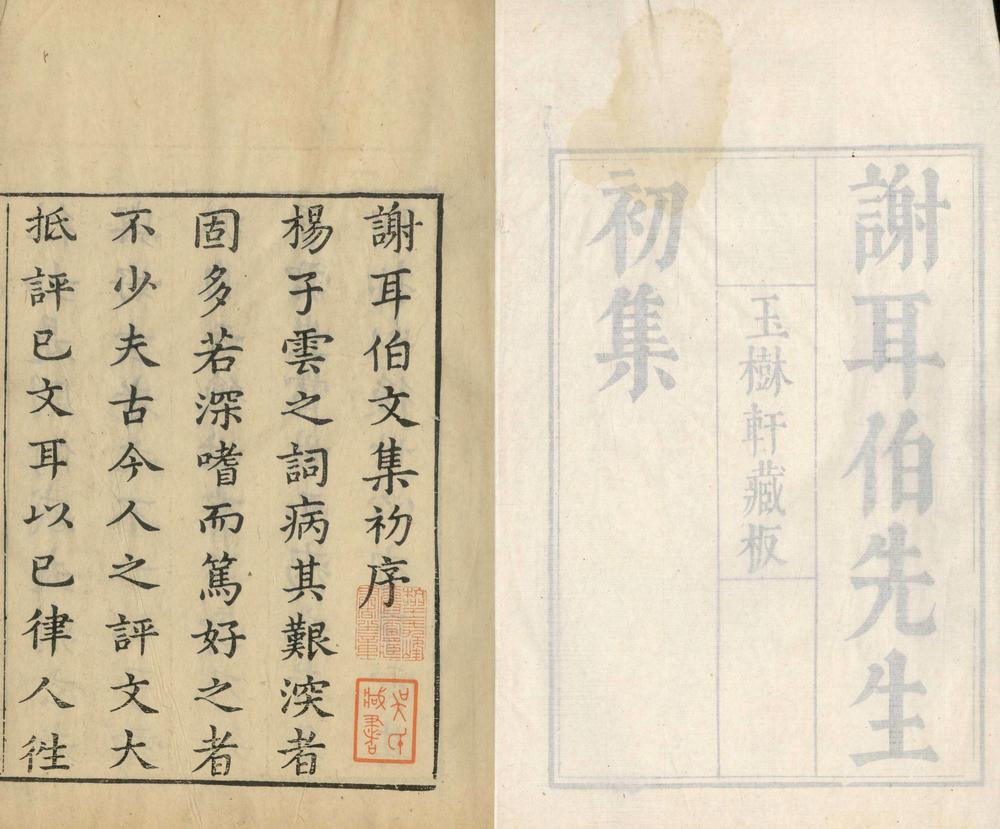 謝耳伯先生
玉樹軒藏板
初集
謝耳伯文集初序
楊子雲之詞病其艱深者
固多若深嗜而篤好之者
不少夫古今人之評文大
抵評已文耳以已律人徃